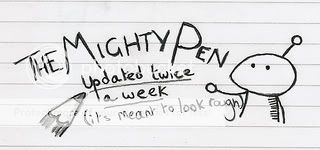 THE MIGHTY PEN
updated twice
a week
(it's meant to look rough)